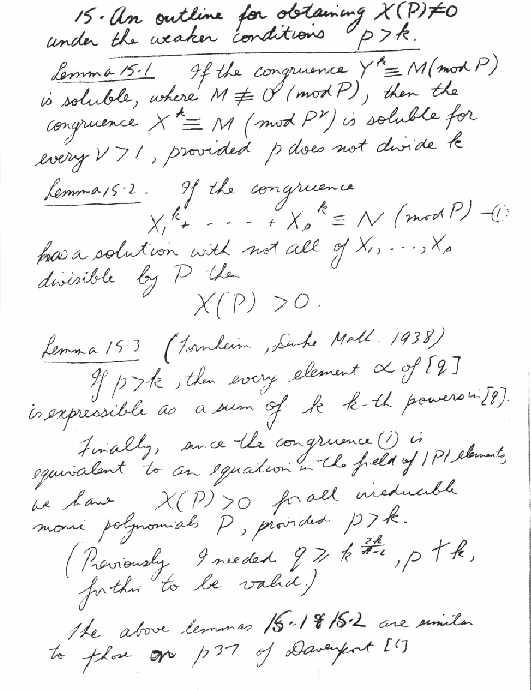 15. An outline for obtaining X(P)≠0
under the weaker conditions p > k.
Lemma 15.1 If the congruence Y^k ≡ M (mod P)
is soluble, where M ≢ O (mod P), then the
congruence X^k ≡ M (mod P^ν) is soluble for
every ν > 1, provided p does not divide k
Lemma 15.2. If the congruence
X₁^k + - - - - + X_s^k ≡ N (mod P) —(1)
has a solution with not all of X₁, ..., X_s
divisible by P then
X(P) > 0.
Lemma 15.3 (Tornheim, Duke Math. 1938)
If p > k, then every element α of [q]
is expressible as a sum of k k-th powers in [q].
Finally, since the congruence (1) is
equivalent to an equation in the field of |P| elements,
we have X(P) > 0 for all irreducible
monic polynomials P, provided p > k.
(Previously I needed q ≥ k, p ∤ k,
for this to be valid.)
The above lemmas 15.1 & 15.2 are similar
to those on p37 of Davenport [1]